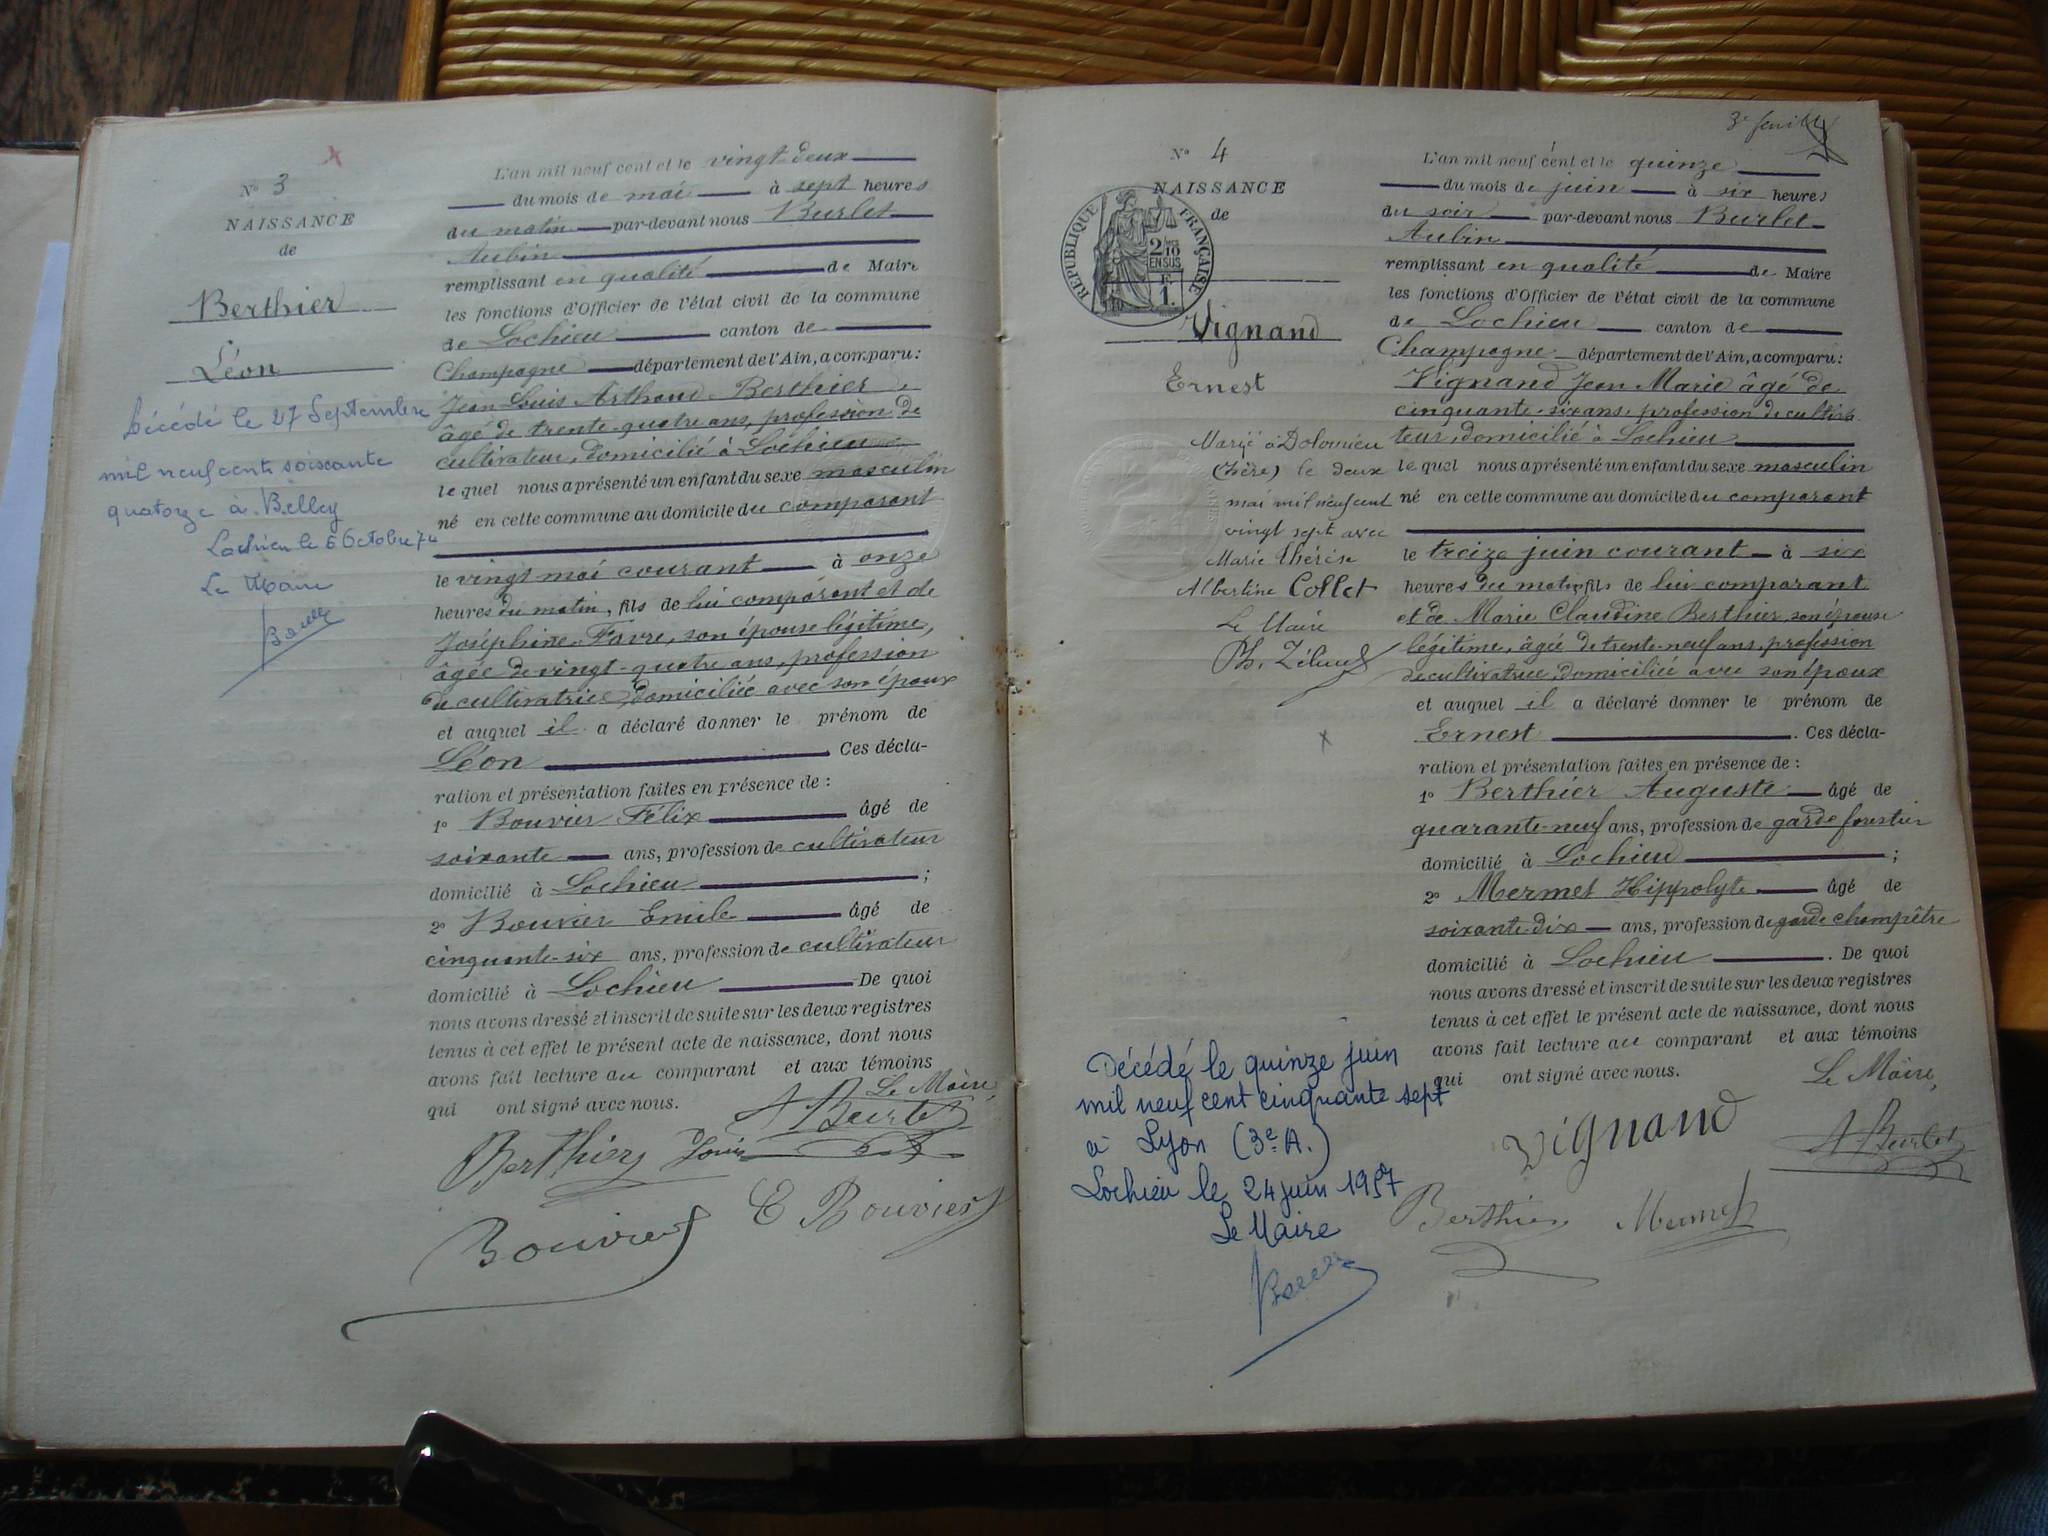 N° 3
NAISSANCE
de
Berthier
Léon
Décédé le 27 Septembre
mil neuf cent soixante
quatorze à Belley
Lochieu le 6 Octobre 74
Le Maire
L'an mil neuf cent et le vingt deux
du mois de mai à sept heures
du matin par-devant nous Burlet
Aubin
remplissant en qualité de Maire
les fonctions d'Officier de l'état civil de la commune
de Lochieu canton de
Champagne département de l'Ain, a comparu:
Jean Louis Arthaud Berthier,
âgé de trente-quatre ans, profession de
cultivateur, domicilié à Lochieu
lequel nous a présenté un enfant du sexe masculin
né en cette commune au domicile du comparant
le vingt mai courant à onze
heures du matin, fils de lui comparant et de
Joséphine Favre, son épouse légitime,
âgée de vingt-quatre ans, profession
de cultivatrice, domiciliée avec son époux
et auquel il a déclaré donner le prénom de
Léon. Ces décla-
ration et présentation faites en présence de :
1° Bouvier Félix âgé de
soixante ans, profession de cultivateur
domicilié à Lochieu ;
2° Bouvier Emile âgé de
cinquante-six ans, profession de cultivateur
domicilié à Lochieu De quoi
nous avons dressé et inscrit de suite sur les deux registres
tenus à cet effet le présent acte de naissance, dont nous
avons fait lecture au comparant et aux témoins
qui ont signé avec nous.
Le Maire,
A Burlet
Berthier Louis
E Bouvier
Bouvier
3e feuillet
N° 4
NAISSANCE
de
REPUBLIQUE FRANÇAISE
2/10
EN SUS
F.
1.
Vignand
Ernest
Marié à Dolomieu
(Isère) le deux
mai mil neuf cent
vingt sept avec
Marie Thérèse
Albertine Collet
Le Maire
L'an mil neuf cent et le quinze
du mois de juin à six heures
du soir par-devant nous Burlet
Aubin
remplissant en qualité de Maire
les fonctions d'Officier de l'état civil de la commune
de Lochieu canton de
Champagne département de l'Ain, a comparu:
Vignand Jean Marie âgé de
cinquante-six ans, profession de cultiva
teur, domicilié à Lochieu
lequel nous a présenté un enfant du sexe masculin
né en cette commune au domicile du comparant
le treize juin courant à six
heures du matin, fils de lui comparant
et de Marie Claudine Berthier, son épouse
légitime, âgée de trente-neuf ans, profession
de cultivatrice, domiciliée avec son époux
et auquel il a déclaré donner le prénom de
Ernest. Ces décla-
ration et présentation faites en présence de :
1° Berthier Auguste âgé de
quarante-neuf ans, profession de garde forestier
domicilié à Lochieu ;
2° Mermet Hippolyte âgé de
soixante-dix ans, profession de garde champêtre
domicilié à Lochieu. De quoi
nous avons dressé et inscrit de suite sur les deux registres
tenus à cet effet le présent acte de naissance, dont nous
avons fait lecture au comparant et aux témoins
qui ont signé avec nous.
Le Maire,
Vignand
A Burlet
Berthier
Mermet
Décédé le quinze juin
mil neuf cent cinquante sept
à Lyon (3e A.)
Lochieu le 24 juin 1957
Le Maire